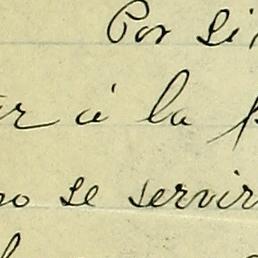 Por si
er á la
no se servir